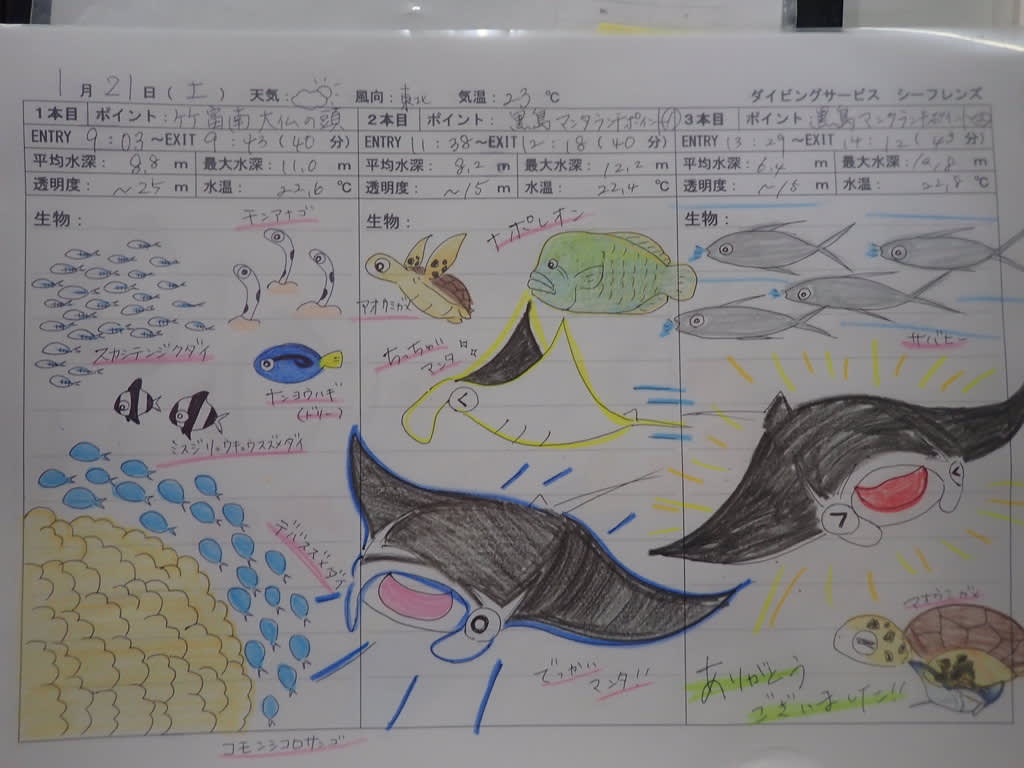 1月21日(土) 天気: 風向:東北 気温:23℃ ダイビングサービス シーフレンズ
1本目 ポイント:竹富南 大仏の頭
ENTRY 9:03~EXIT 9:43(40分)
平均水深: 8,8 m 最大水深: 11,0 m
透明度: ~25 m 水温: 22,6 ℃
生物:
モンアナゴ
スカシテンジクダイ
ナンヨウハギ
(ドリー)
ミスジリュウキュウスズメダイ
デバスズメダイ
コモンシコロサンゴ
2本目 ポイント: 黒島マンタランチポイント
ENTRY 11:38~EXIT 12:18(40分)
平均水深: 8,2 m 最大水深: 12,2 m
透明度: ~15 m 水温: 22,4 ℃
生物:
ナポレオン
アオウミガメ
ちっちゃ
マンタ
でっかい
マンタ!!
3本目 ポイント 黒島マンタランチポイント
ENTRY 13:29~EXIT 14:12(43分)
平均水深: 6,4 m 最大水深: 10,8 m
透明度: ~18 m 水温: 22,8 ℃
生物:
サバヒー
アオウミガメ
ありがとう
ございました!!